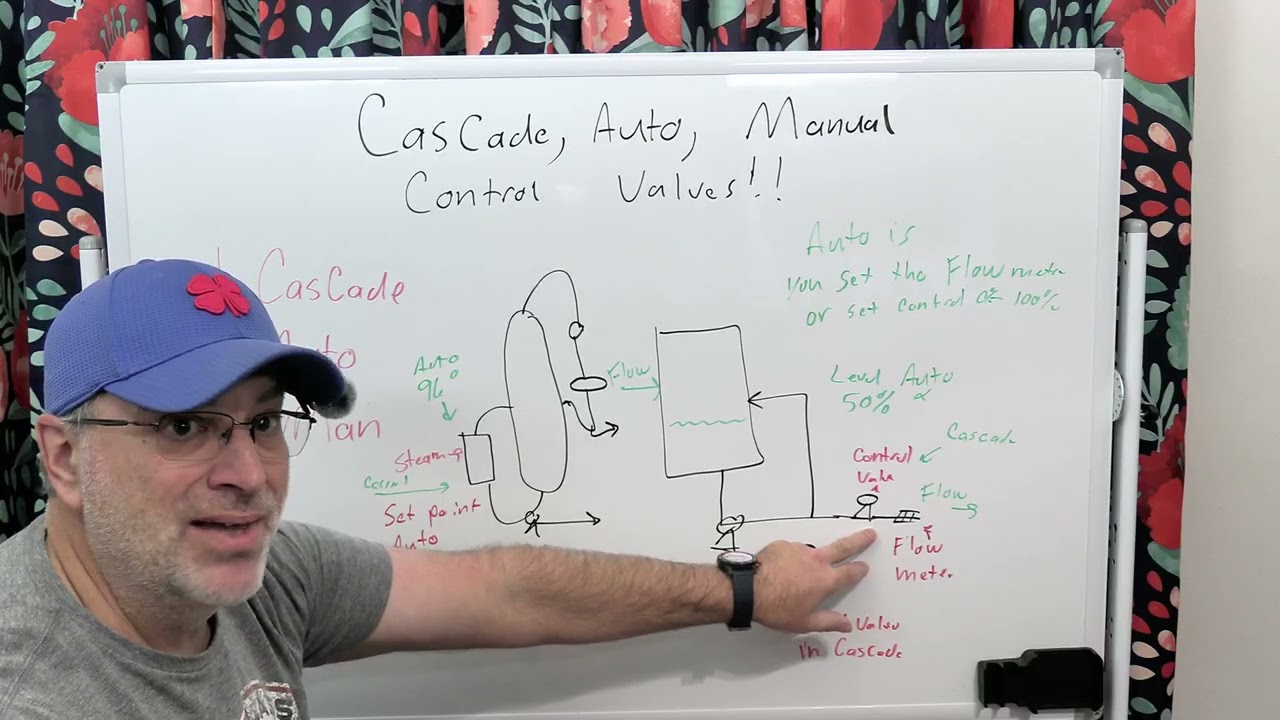 Cascade, Auto, Manual
Control Valves!!
Auto is
you set the Flow meter
or set control 0% 100%
Cascade
Auto
96°
Flow
Level Auto
50%
Cascade
Control
Valve
Steam
Flow
Set point
Auto
Flow
meter
Valve
in Cascade